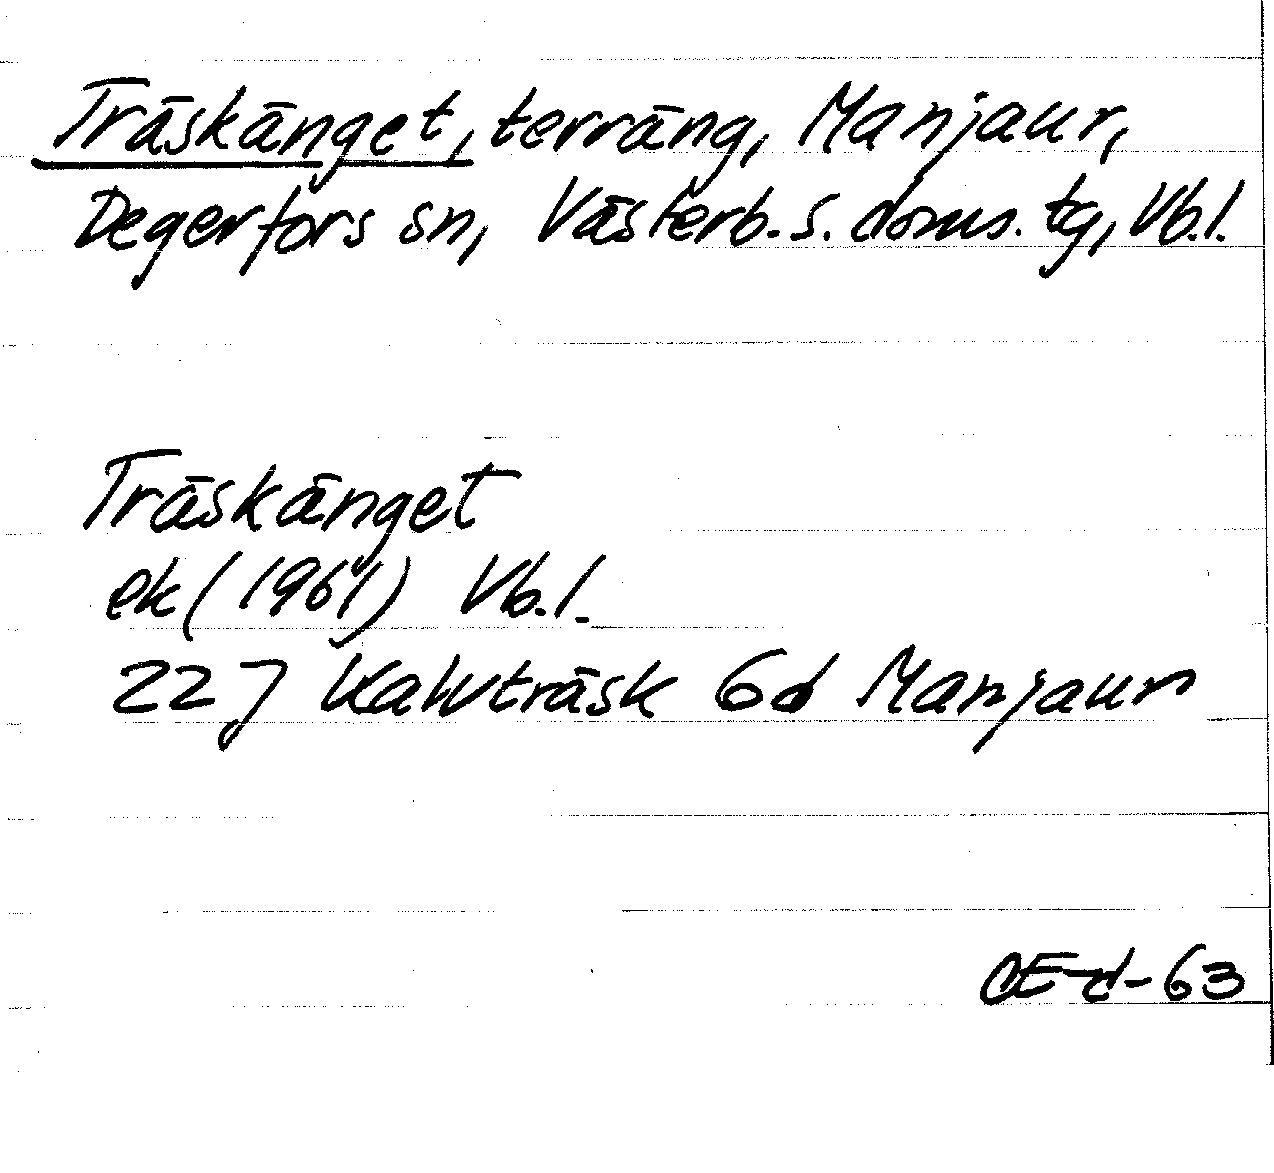 Träskänget, terräng, Manjaur,
Degerfors sn, Västerb. s. doms. tg, Vb.l.
Träskänget
ek (1961) Vb.l.
22 J Kalvträsk 6d Manjaur
CE-d-63